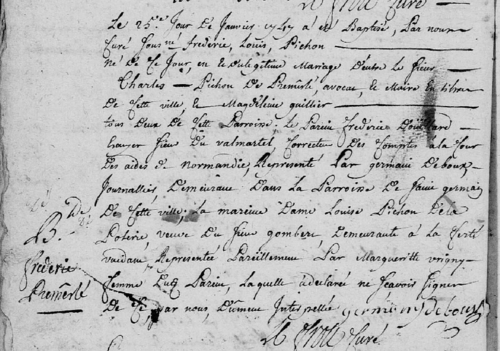 Le 25.e Jour De Janvier 1757 a été Baptisé, Par nous
Curé Sous.né frederic, Louis, Pichon
né De Ce Jour, en Le Legitime Mariage D'entre Le Sieur
Charles Pichon De Premerlé, avocat, et Maire en titre
De Cette ville, et Magdeleine guillier
tous Deux De Cette Parroise. Le Parein frederic Douillard
Ecuyer Sieur Du valmartel, Correcteur Des Comptes, a La Cour
Des aides De normandie, Représenté Par germain Deboux
Journallier Demeurant Dans La Parroise De Saint germain
De Cette ville, La mareine Dame Louise Pichon De La
Poterie, veuve Du Sieur gombert Demeurante a La ferté
vaidam Representée Pareillement Par Margueritte vrigny
femme Dud. Parein, Laquelle a declarée ne Sçavoir Signer
De Ce, par nous, Dument Interpellée germien deboux
Curé
B. De
frederic
Premerlé